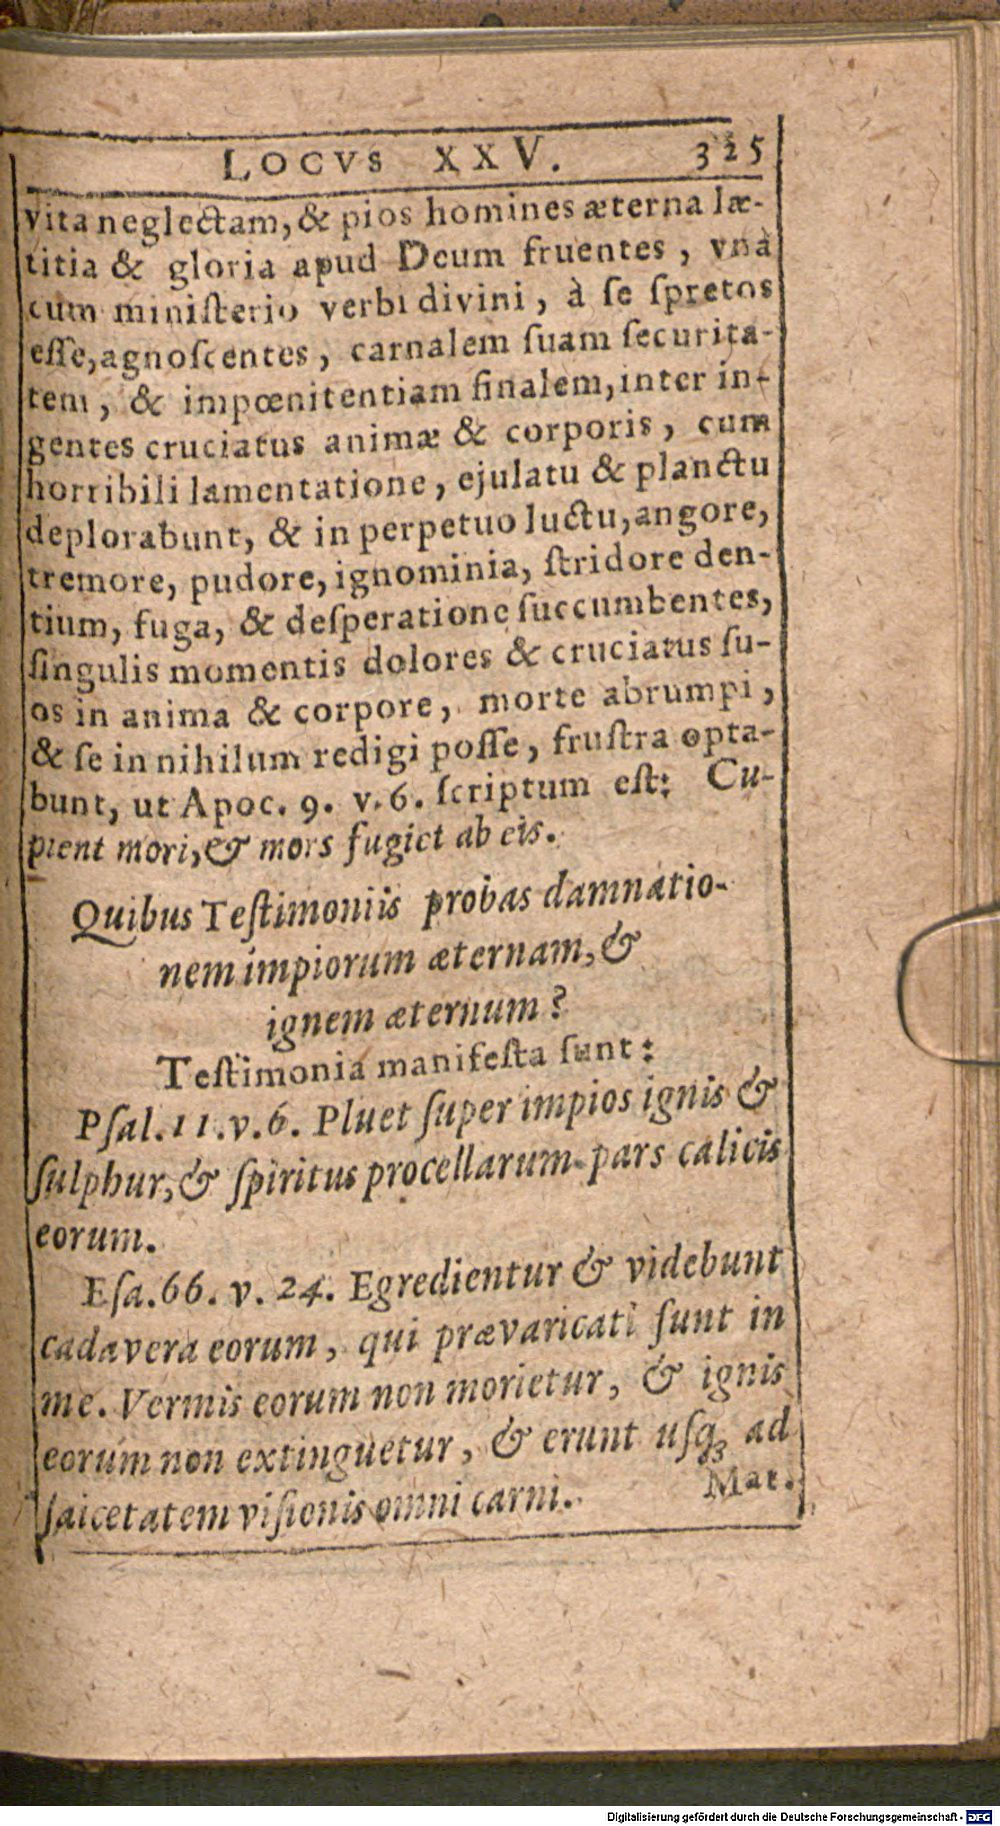 LOCVS XXV. 325
vita neglectam, & pios homines æterna læ-
titia & gloria apud Deum fruentes, vnà
cum ministerio verbi divini, à se spretos
esse, agnoscentes, carnalem suam securita-
tem, & impœnitentiam finalem, inter in-
gentes cruciatus animæ & corporis, cum
horribili lamentatione, ejulatu & planctu
deplorabunt, & in perpetuo luctu, angore,
tremore, pudore, ignominia, stridore den-
tium, fuga, & desperatione succumbentes,
singulis momentis dolores & cruciatus su-
os in anima & corpore, morte abrumpi,
& se in nihilum redigi posse, frustra opta-
bunt, ut Apoc. 9. v. 6. scriptum est: Cu-
pient mori, & mors fugiet ab eis.
Quibus Testimoniis probas damnatio-
nem impiorum æternam, &
ignem æternum?
Testimonia manifesta sunt:
Psal. 11. v. 6. Pluet super impios ignis &
sulphur, & spiritus procellarum pars calicis
eorum.
Esa. 66. v. 24. Egredientur & videbunt
cadavera eorum, qui prævaricati sunt in
me. Vermis eorum non morietur, & ignis
eorum non extinguetur, & erunt usq3 ad
saicetatem visionis omni carni.
Mat.
Digitalisierung gefördert durch die Deutsche Forschungsgemeinschaft - DFG